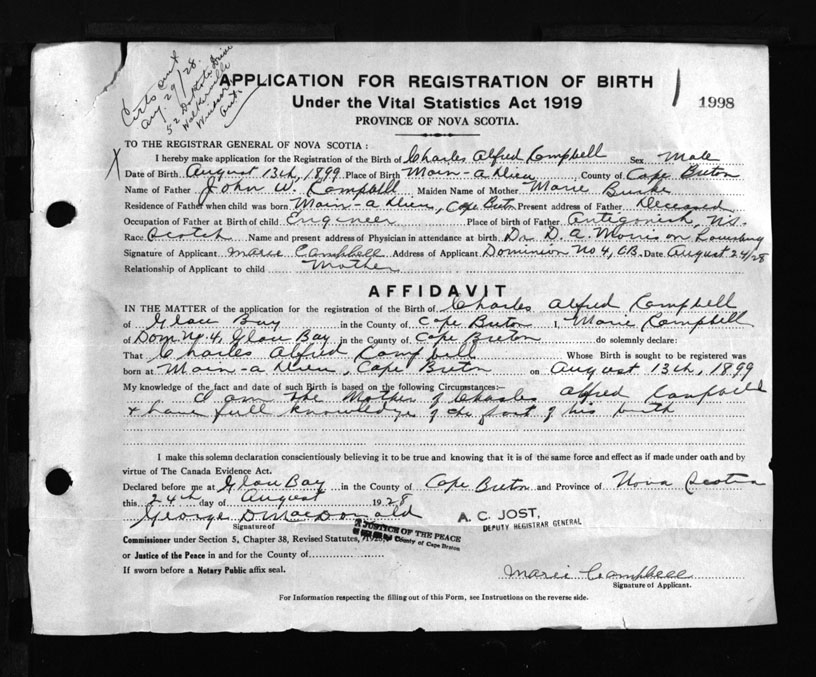 Certs sent
Aug. 29/28.
52 Dakota Drive
Walkerville
Windsor
Ont.
APPLICATION FOR REGISTRATION OF BIRTH
Under the Vital Statistics Act 1919
1 1998
PROVINCE OF NOVA SCOTIA.
TO THE REGISTRAR GENERAL OF NOVA SCOTIA:
I hereby make application for the Registration of the Birth of Charles Alfred Campbell Sex Male
X Date of Birth August 13th, 1899 Place of Birth Main-a Dieu, County of Cape Breton
Name of Father John W. Campbell Maiden Name of Mother Marie Burke
Residence of Father when child was born Main-a Dieu, Cape Breton Present address of Father Deceased
Occupation of Father at Birth of child Engineer Place of birth of Father Antigonish, N.S.
Race Scotch Name and present address of Physician in attendance at birth Dr. D. A. Morrison Louisburg
Signature of Applicant Marie Campbell Address of Applicant Dominion No 4, C.B. Date August 24/28
Relationship of Applicant to child Mother
AFFIDAVIT
IN THE MATTER of the application for the registration of the Birth of Charles Alfred Campbell
of Glace Bay in the County of Cape Breton I, Marie Campbell
of Dom. No 4, Glace Bay in the County of Cape Breton do solemnly declare:
That Charles Alfred Campbell Whose Birth is sought to be registered was
born at Main-a Dieu, Cape Breton on August 13th, 1899
My knowledge of the fact and date of such Birth is based on the following Circumstances:—
I am the Mother of Charles Alfred Campbell
& have full knowledge of the fact of his birth
I make this solemn declaration conscientiously believing it to be true and knowing that it is of the same force and effect as if made under oath and by
virtue of The Canada Evidence Act.
Declared before me at Glace Bay in the County of Cape Breton and Province of Nova Scotia
this 24th day of August 1928
George D MacDonald
A. C. JOST,
DEPUTY REGISTRAR GENERAL
Signature of
A JUSTICE OF THE PEACE
County of Cape Breton
Commissioner under Section 5, Chapter 38, Revised Statutes, 1923,
or Justice of the Peace in and for the County of
If sworn before a Notary Public affix seal.
Marie Campbell
Signature of Applicant.
For Information respecting the filling out of this Form, see Instructions on the reverse side.